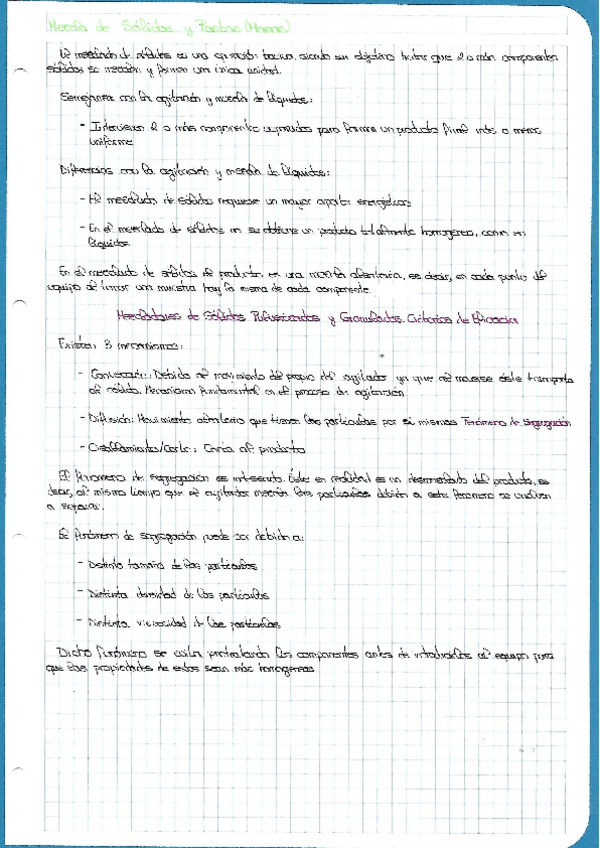 Mezcla de Sólidos y Pastas (Masas)
El mezclado de sólidos es una operación básica, siendo su objetivo tratar que 2 o más componentes
sólidos se mezclen y formen una única unidad.
Semejanzas con la agitación y mezcla de líquidos:
- Intervienen 2 o más componentes para formar un producto final más o menos
uniforme
Diferencias con la agitación y mezcla de líquidos:
- El mezclado de sólidos requiere un mayor aporte energético
- En el mezclado de sólidos no se obtiene un producto totalmente homogéneo, como en
líquidos
En el mezclado de sólidos se produce una mezcla aleatoria, es decir, en cada punto del
equipo al tomar una muestra hay la misma de cada componente
Mezcladores de Sólidos Pulverizados y Granulados. Criterios de Eficacia
Existen 3 mecanismos:
- Convección: Debido al movimiento del propio del agitador ya que al moverse éste transporta
al sólido. Mecanismo fundamental en el proceso de agitación
- Difusión: Movimiento aleatorio que tienen las partículas por sí mismas Fenómeno de Segregación
- Cizallamiento/Corte: Corta al producto
El fenómeno de segregación es interesante. Éste en realidad es un desmezclado del producto, es
decir, al mismo tiempo que el agitador mezcla las partículas debido a este fenómeno se vuelven
a separar.
El fenómeno de segregación puede ser debido a:
- Distinto tamaño de las partículas
- Distinta densidad de las partículas
- Distinta viscosidad de las partículas
Dicho fenómeno se evita pretratando los componentes antes de introducirlos al equipo para
que las propiedades de estos sean más homogéneas